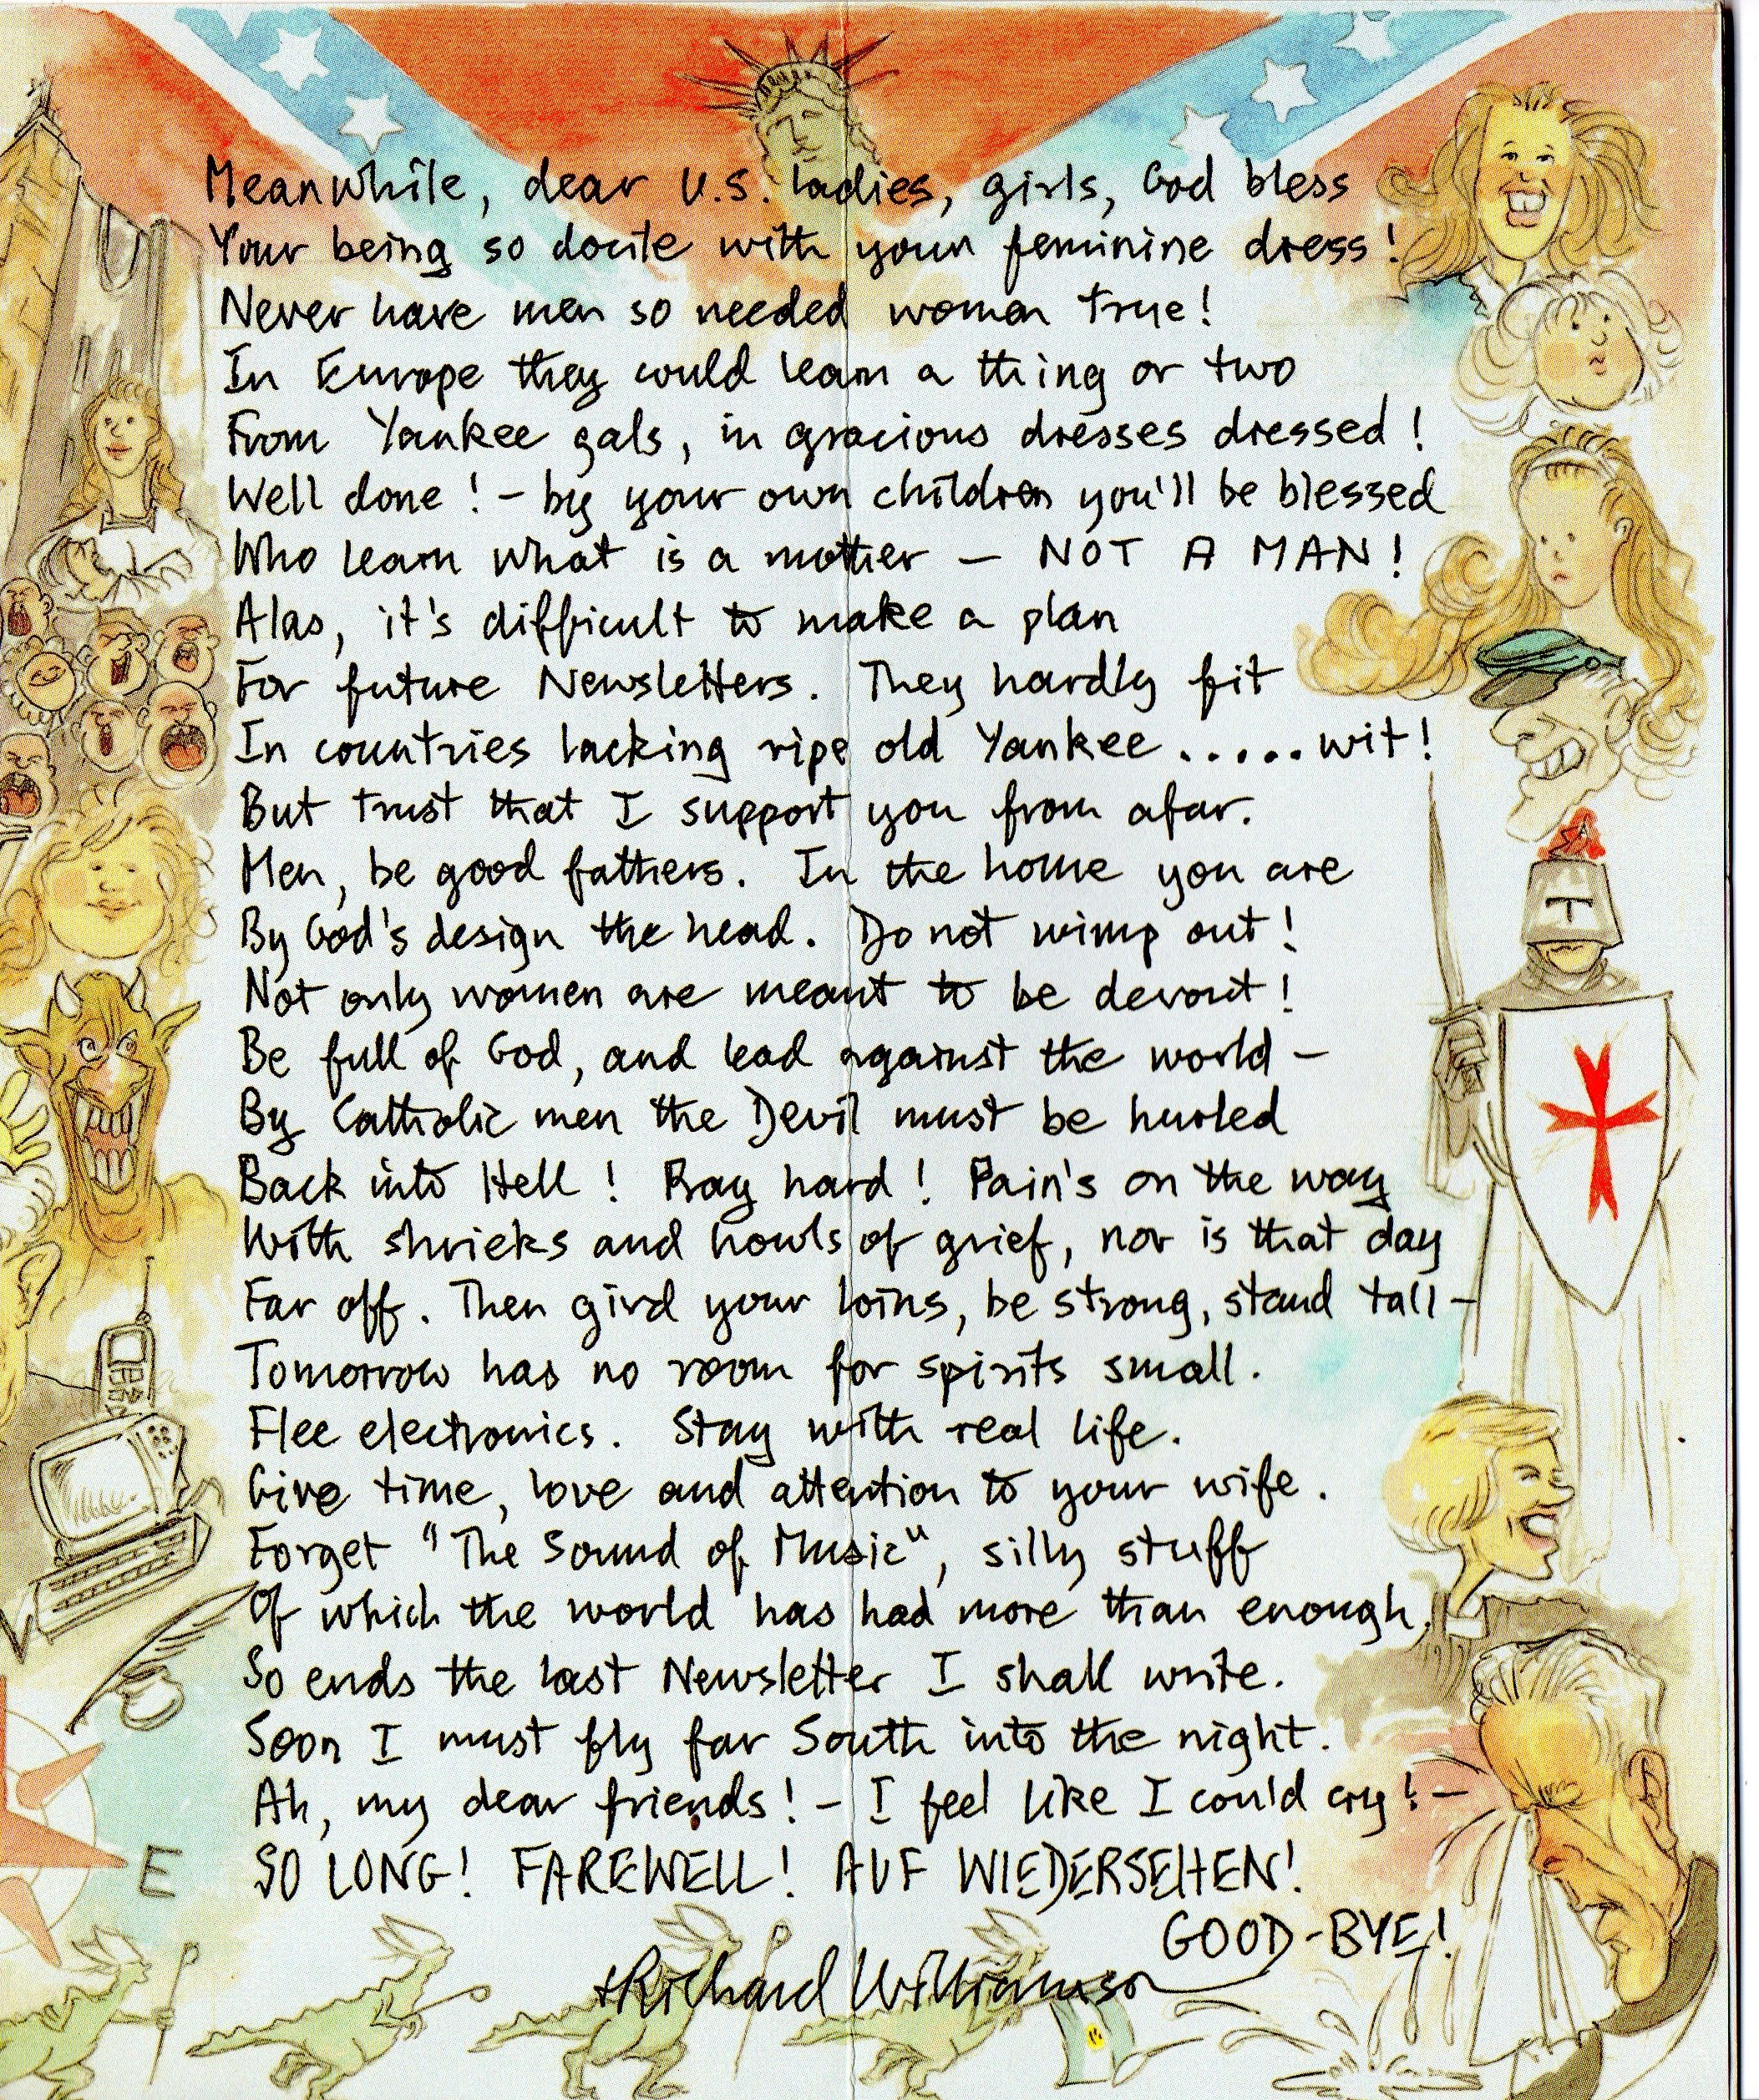 Meanwhile, dear U.S. ladies, girls, God bless
Your being so docile with your feminine dress!
Never have men so needed women true!
In Europe they could learn a thing or two
From Yankee gals, in gracious dresses dressed!
Well done! - by your own children you'll be blessed
Who learn what is a mother - NOT A MAN!
Alas, it's difficult to make a plan
For future Newsletters. They hardly fit
In countries lacking ripe old Yankee.....wit!
But trust that I support you from afar.
Men, be good fathers. In the home you are
By God's design the head. Do not wimp out!
Not only women are meant to be devout!
Be full of God, and lead against the world -
By Catholic men the Devil must be hurled
Back into Hell! Pray hard! Pain's on the way
With shrieks and howls of grief, nor is that day
Far off. Then gird your loins, be strong, stand tall -
Tomorrow has no room for spirits small.
Flee electronics. Stay with real life.
Give time, love and attention to your wife.
Forget "The Sound of Music", silly stuff
Of which the world has had more than enough.
So ends the last Newsletter I shall write.
Soon I must fly far South into the night.
Ah, my dear friends! - I feel like I could cry! -
E
SO LONG! FAREWELL! AUF WIEDERSEHEN!
GOOD-BYE!
+Richard Williamson